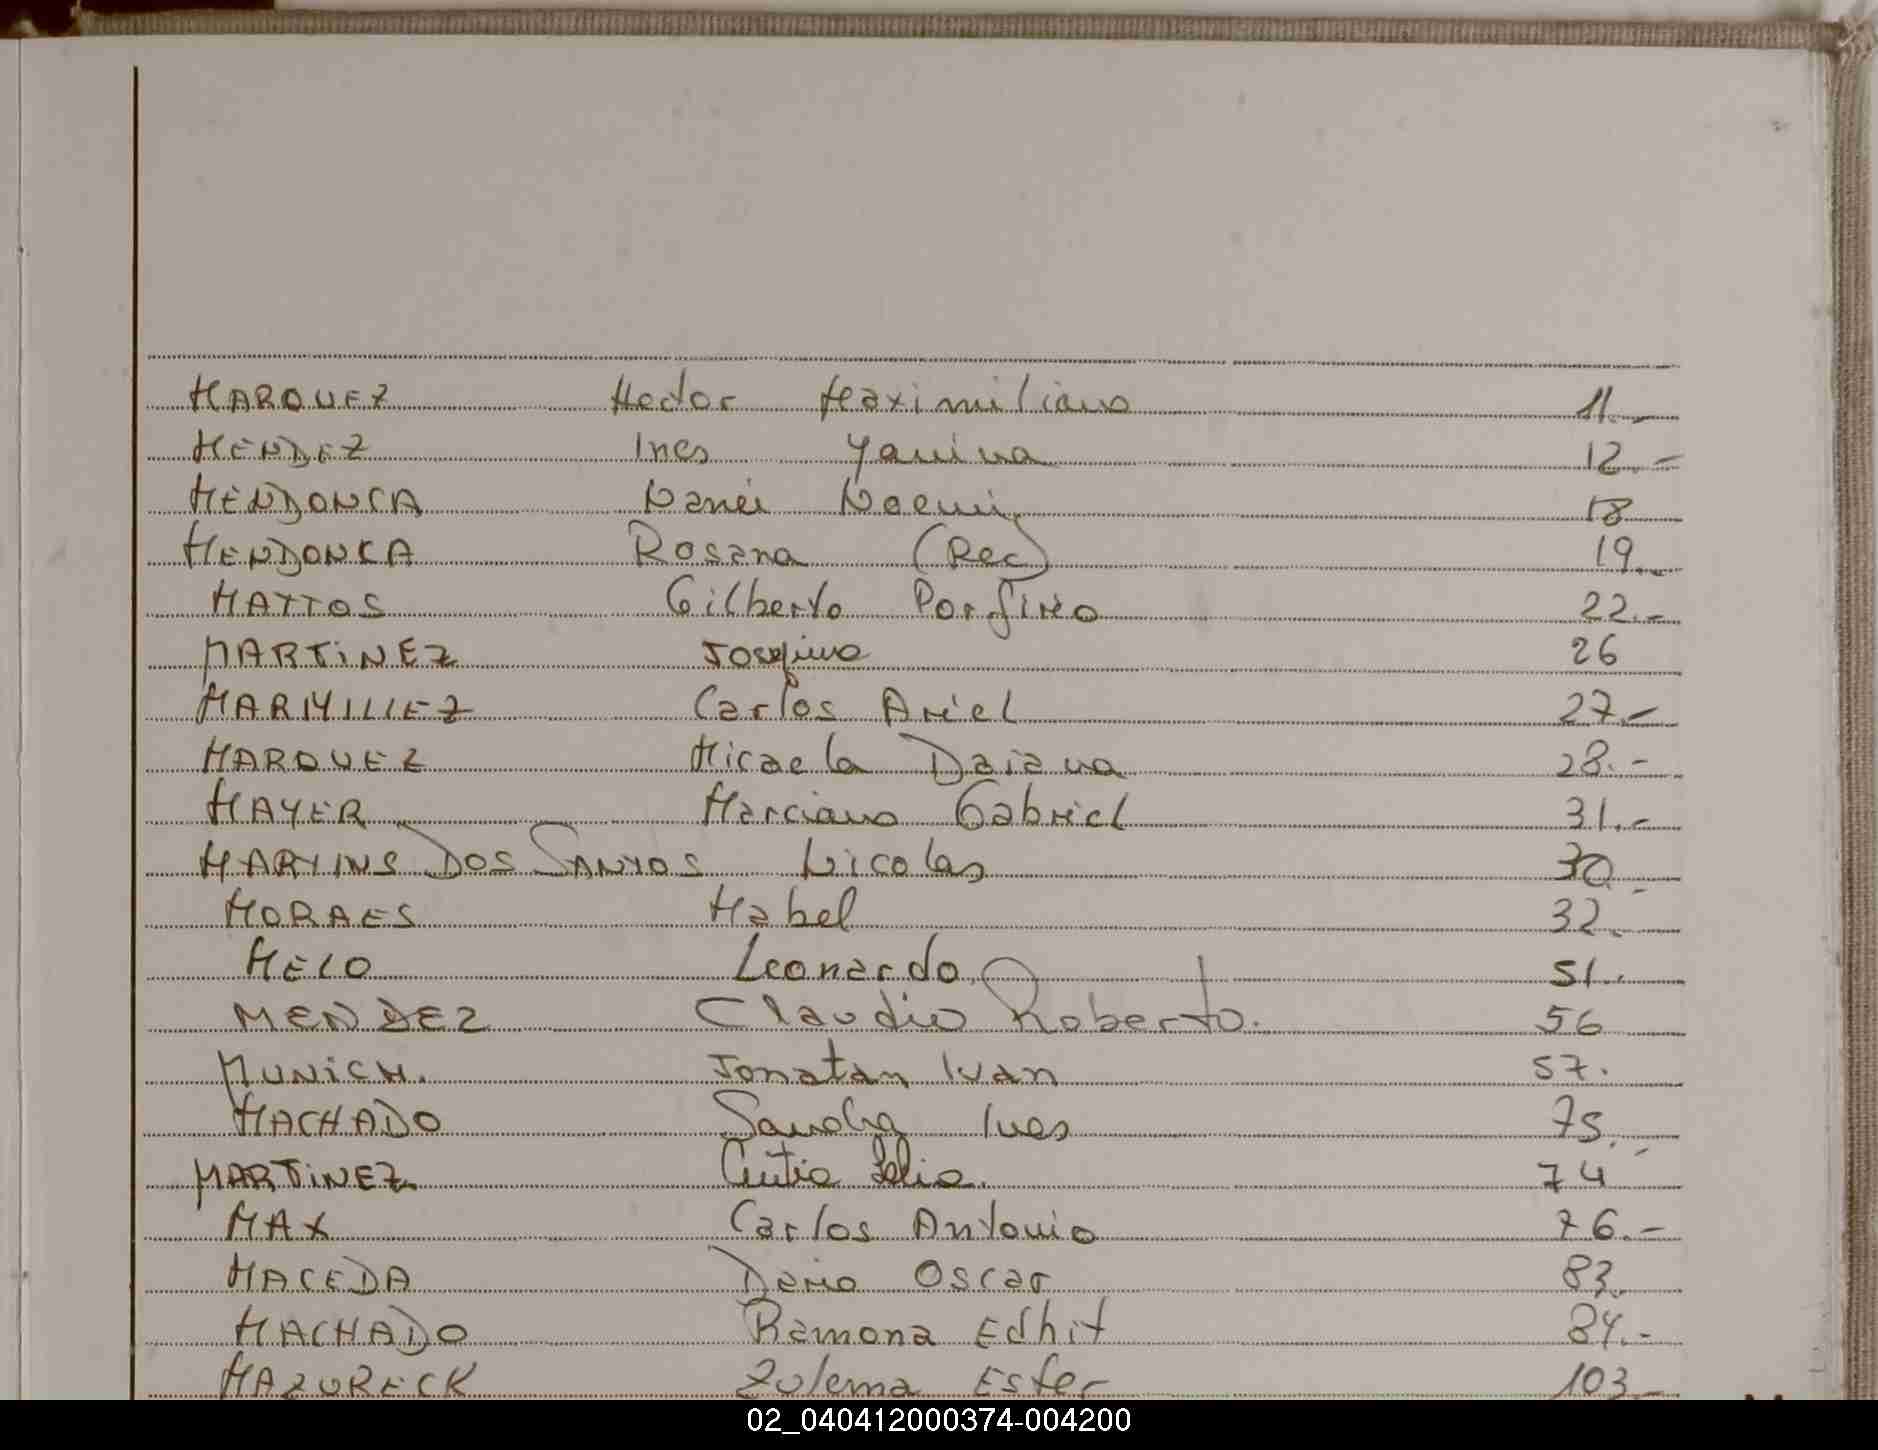 MARQUEZ Hector Maximiliano 11.-
MENDEZ Ines Yanina 12.-
MENDONCA Noemi 18
MENDONCA Rosana (Rec) 19.-
MATTOS Gilberto Porfirio 22.-
MARTiNEZ 26
Carlos Ariel 27.-
MARQUEZ Micaela Daiana 28.-
MAYER Marciano Gabriel 31.-
MARTINS DOS SANTOS Nicolas 30.-
MORAES Mabel 32.
MELO Leonardo 51.
MENDEZ Claudio Roberto. 56
MUNiCH. Jonatan Ivan 57.
MACHADO Sandra Ines 75.-
MARTiNEZ 74
MAX Carlos Antonio 76.-
MACEDA Dario Oscar 83.
MACHADO Ramona Edhit 84.-
MAZURECK Zulema Ester 103.-
02_040412000374-004200